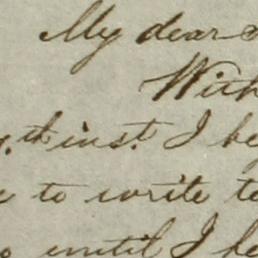 My dear
With
inst. I be
to write to
until I be